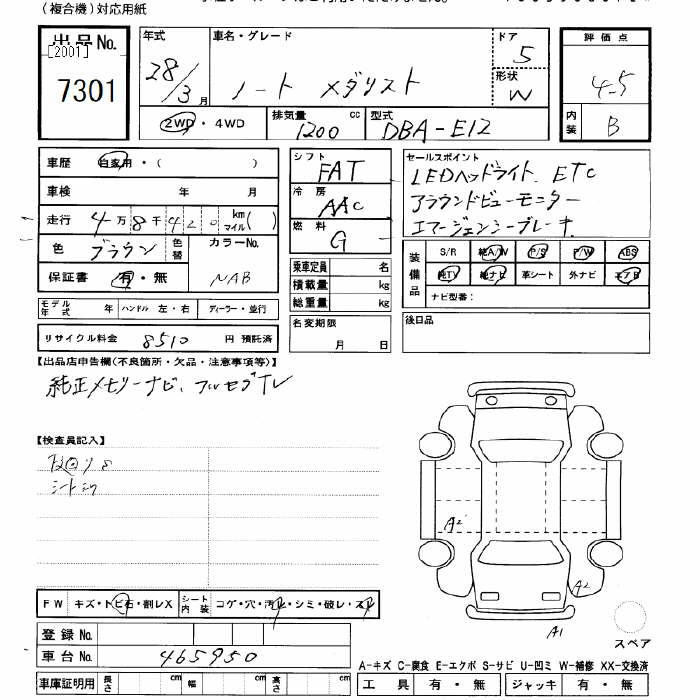 (複合機)対応用紙
出品No.
[2001]
7301
年式
28/3月
車名・グレード
ノート メダリスト
ドア
5
形状
W
評価点
4.5
内装
B
2WD・4WD
排気量
1200 cc
型式
DBA-E12
車歴 自家用・( )
車検 年 月
走行 4万8千420 km マイル( )
色 ブラウン 色替 カラーNo.
保証書 有・無 NAB
モデル年式 年 ハンドル 左・右 ディーラー・並行
リサイクル料金 8510 円 預託済
シフト
FAT
冷房
AAC
燃料
G
乗車定員 名
積載量 kg
総重量 kg
名変期限
月 日
セールスポイント
LEDヘッドライト、ETC
アラウンドビューモニター
エマージェンシーブレーキ
装備品
S/R 純A/W P/S P/W ABS
純TV 純ナビ 革シート 外ナビ エアB
ナビ型番:
後日品
【出品店申告欄(不良箇所・欠品・注意事項等)】
純正メモリーナビ、フルセグTV
【検査員記入】
シート
A2
A2
A1
スペア
FW キズ・トビ石・割レX シート内装 コゲ・穴・汚レ・シミ・破レ・スレ
登録No.
車台No. 465950
車庫証明用 長さ cm 幅 cm 高さ cm
A-キズ C-腐食 E-エクボ S-サビ U-凹ミ W-補修 XX-交換済
工具 有・無 ジャッキ 有・無